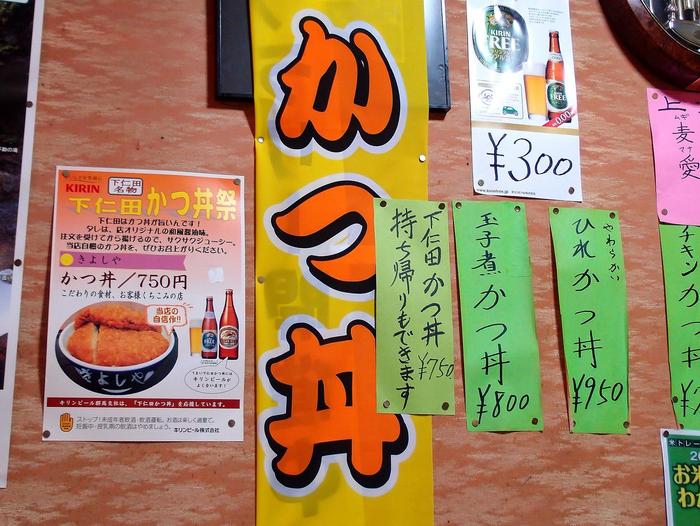 KIRIN
下仁田名物
下仁田かつ丼祭
下仁田はかつ丼が旨いんです！
タレは、店オリジナルの和風醤油味。
注文を受けてから揚げるので、サクサクジューシー。
当店自慢のかつ丼を、ぜひお召上がりください。
きよしや
かつ丼／750円
こだわりの食材、お客様くちこみの店
当店の
自信作!!
きよしや
キリンビールが
よくあいます！
キリンビール群馬支社は、「下仁田かつ丼」を応援しています。
ストップ！未成年者飲酒・飲酒運転。お酒は楽しく適量で。
妊娠中・授乳期の飲酒はやめましょう。
キリンビール株式会社
かつ丼
KIRIN
FREE
0.00%
¥300
下仁田かつ丼
持ち帰りもできます
¥750
玉子煮かつ丼
¥800
やわらかい
ひれかつ丼
¥950
上
麦
ムギ
愛
マナ
チキンか
お米
わた